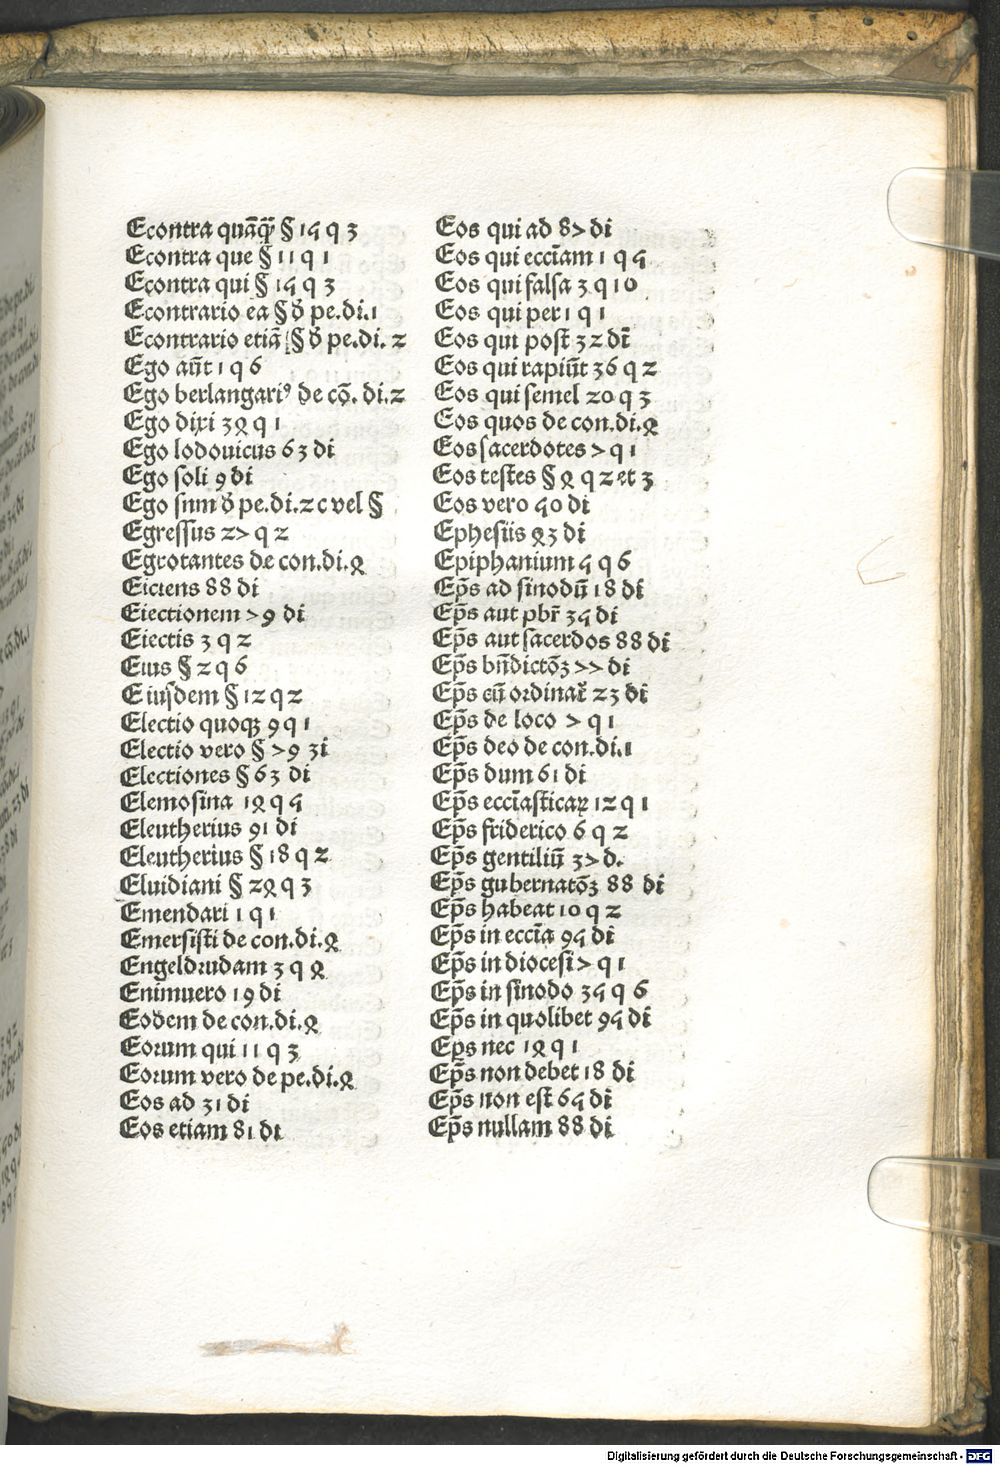 Econtra quāq̃ꝫ § 15 q 3
Econtra que § 11 q 1
Econtra qui § 15 q 3
Econtrario ea § ð pe.di.1
Econtrario etiā § ð pe.di. 2
Ego aūt 1 q 6
Ego berlangariꝰ de cō. di.2
Ego dixi 34 q 1
Ego lodouicus 63 di
Ego soli 9 di
Ego sum ð pe.di.2 c vel §
Egressus 27 q 2
Egrotantes de con.di.4
Eiciens 88 di
Eiectionem 79 di
Eiectis 3 q 2
Eius § 2 q 6
Eiusdem § 12 q 2
Electio quoqꝫ 9 q 1
Electio vero § 79 3i
Electiones § 63 di
Elemosina 14 q 5
Eleutherius 91 di
Eleutherius § 18 q 2
Eluidiani § 24 q 3
Emendari 1 q 1
Emersisti de con.di.4
Engeldrudam 3 q 4
Enimuero 19 di
Eodem de con.di.4
Eorum qui 11 q 3
Eorum vero de pe.di.4
Eos ad 31 di
Eos etiam 81 di
Eos qui ad 87 di
Eos qui ecciam 1 q 5
Eos qui falsa 3 q 10
Eos qui per 1 q 1
Eos qui post 32 di
Eos qui rapiūt 36 q 2
Eos qui semel 20 q 3
Eos quos de con.di.4
Eos sacerdotes 7 q 1
Eos testes § 4 q 2 et 3
Eos vero 50 di
Ephesiis 43 di
Epiphanium 5 q 6
Ep̄s ad sinodū 18 di
Ep̄s aut pbr̄ 35 di
Ep̄s aut sacerdos 88 di
Ep̄s bn̄dictōꝫ 77 di
Ep̄s cū ordinar̄ 23 di
Ep̄s de loco 7 q 1
Ep̄s deo de con.di.1
Ep̄s dum 61 di
Ep̄s ecciasticaꝝ 12 q 1
Ep̄s friderico 6 q 2
Ep̄s gentiliū 37 d.
Ep̄s gubernatōꝫ 88 di
Ep̄s habeat 10 q 2
Ep̄s in eccia 95 di
Ep̄s in diocesi 7 q 1
Ep̄s in sinodo 35 q 6
Ep̄s in quolibet 95 di
Eps nec 14 q 1
Ep̄s non debet 18 di
Ep̄s non est 65 di
Ep̄s nullam 88 di
Digitalisierung gefördert durch die Deutsche Forschungsgemeinschaft - DFG